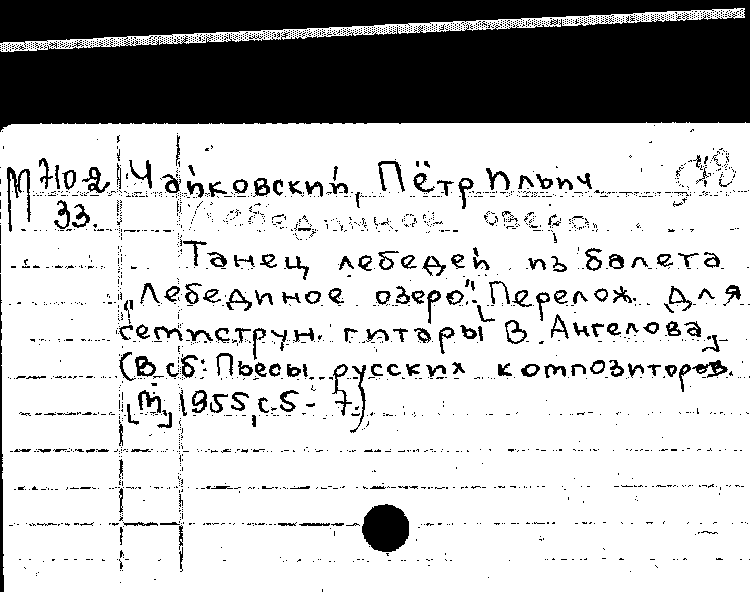 М 710-2 Чайковский, Пётр Ильич. 578
33. Лебединное озеро.
Танец лебедей из балета
„Лебединое озеро". Перелож. для
семиструн. гитары [В. Ангелова]
(В сб: Пьесы русских композиторов.
[М.] 1955, с. 5 - 7)